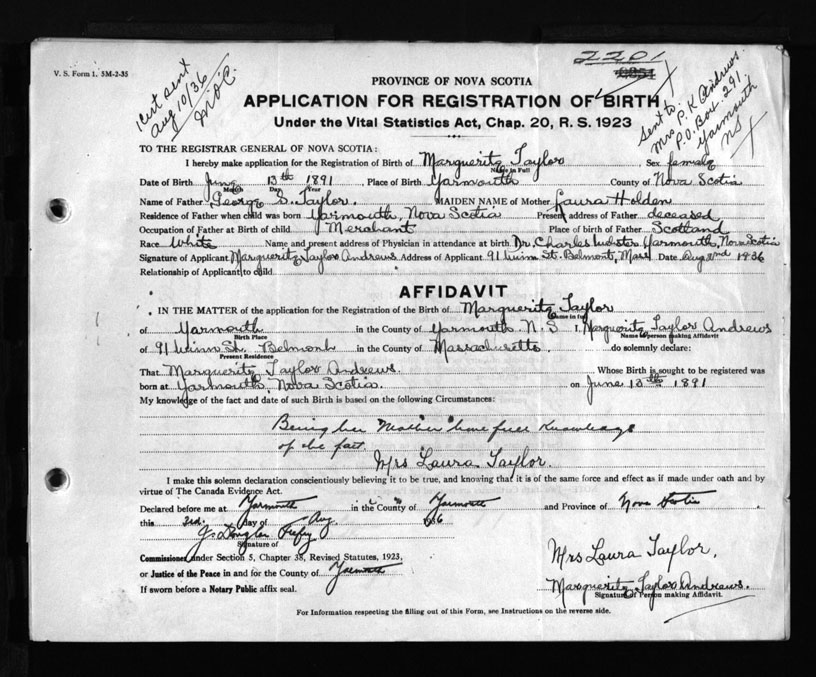 V. S. Form 1. 5M-2-35
Cert sent
Aug 10/36
2201
Sent to
Mrs P. K. Andrews
P.O. Box 291
Yarmouth
NS
PROVINCE OF NOVA SCOTIA
APPLICATION FOR REGISTRATION OF BIRTH
Under the Vital Statistics Act, Chap. 20, R. S. 1923
TO THE REGISTRAR GENERAL OF NOVA SCOTIA:
I hereby make application for the Registration of Birth of Marguerite Taylor Sex female
Name in Full
Date of Birth June 13th 1891 Place of Birth Yarmouth County of Nova Scotia
Month Day Year
Name of Father George S. Taylor MAIDEN NAME of Mother Laura Holden
Residence of Father when child was born Yarmouth, Nova Scotia Present address of Father deceased
Occupation of Father at Birth of child Merchant Place of birth of Father Scotland
Race White Name and present address of Physician in attendance at birth Dr. Charles Webster Yarmouth, Nova Scotia
Signature of Applicant Marguerite Taylor Andrews Address of Applicant 91 Winn St. Belmont, Mass Date Aug 2nd 1936
Relationship of Applicant to child
AFFIDAVIT
IN THE MATTER of the application for the Registration of the Birth of Marguerite Taylor
Name in full
of Yarmouth in the County of Yarmouth N. S I, Marguerite Taylor Andrews
Birth Place Name of person making Affidavit
of 91 Winn St. Belmont in the County of Massachusetts do solemnly declare:
Present Residence
That Marguerite Taylor Andrews. Whose Birth is sought to be registered was
born at Yarmouth, Nova Scotia on June 13th 1891
My knowledge of the fact and date of such Birth is based on the following Circumstances:
Being her "Mother" have full knowledge
of the fact.
Mrs Laura Taylor.
I make this solemn declaration conscientiously believing it to be true, and knowing that it is of the same force and effect as if made under oath and by
virtue of The Canada Evidence Act.
Declared before me at Yarmouth in the County of Yarmouth and Province of Nova Scotia
this 3rd. day of Aug 1936
J. Douglas
Signature of
Commissioner under Section 5, Chapter 38, Revised Statutes, 1923,
or Justice of the Peace in and for the County of Yarmouth
If sworn before a Notary Public affix seal.
Mrs Laura Taylor.
Marguerite Taylor Andrews.
Signature of Person making Affidavit.
For Information respecting the filling out of this Form, see Instructions on the reverse side.